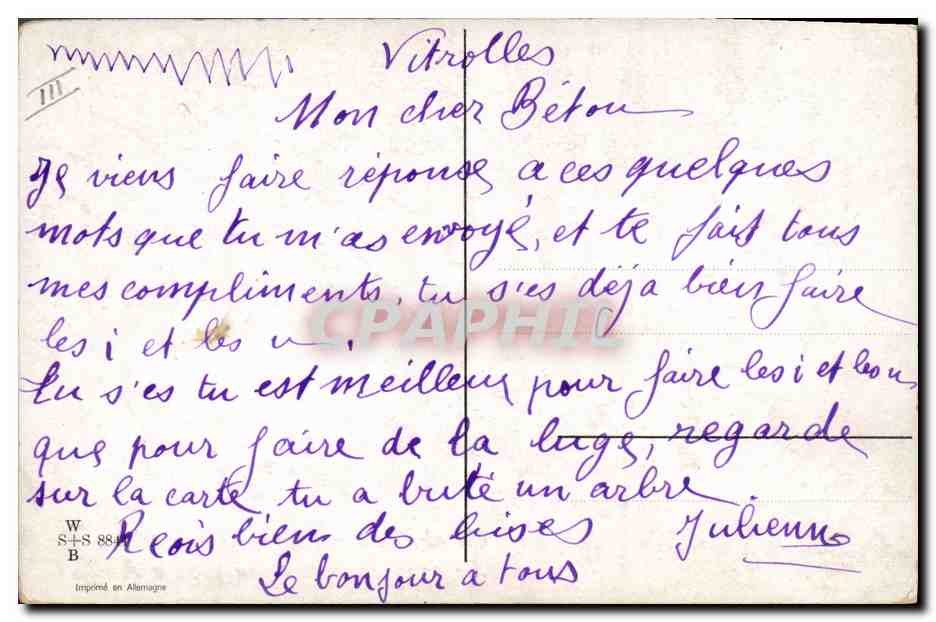 Vitrolles
III
Mon cher Bétou
Je viens faire réponse a ces quelques
mots que tu m'as envoyé, et te fait tous
mes compliments, tu s'es déja bien faire
les i et les u.
CPAPHIL
tu s'es tu est meilleur pour faire les i et les u
que pour faire de la luge, regarde
sur la carte tu a buté un arbre.
W
S+S 884
B
Recois bien des bises Julienne
Le bonjour a tous
Imprimé en Allemagne